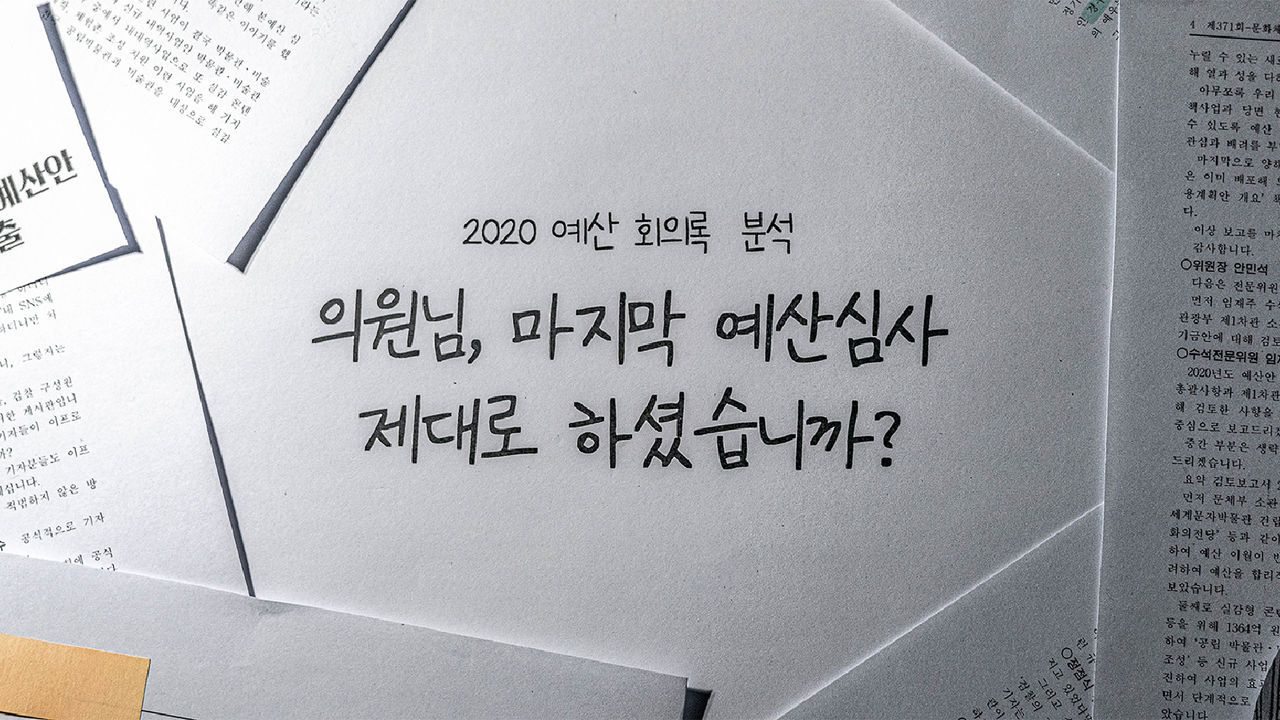 2020 예산 회의록 분석
의원님, 마지막 예산심사
제대로 하셨습니까?
예산안
출
공립박물관과 미술관을 대상으로 실감
내 SNS에
니, 그렇지는
검찰 구성원
기자들이 이프로
기자분들도 이프
적법하지 않은 방
공식적으로 기자
4 제371회-문화체
누릴 수 있는 새로
해 열과 성을 다하
아무쪼록 우리
책사업과 당면 현
수 있도록 예산
관심과 배려를 부
마지막으로 양해
은 이미 배포해
용계획안 개요' 해
다.
이상 보고를 마치
감사합니다.
○위원장 안민석
다음은 전문위원
먼저 임재주 수
관광부 제1차관 소
기금안에 대해 검토
○수석전문위원 임재
2020년도 예산안
총괄사항과 제1차관
해 검토한 사항을
중심으로 보고드리겠
중간 부분은 생략
드리겠습니다.
요약 검토보고서
먼저 문체부 소관
세계문자박물관 건립
화의전당' 등과 같이
하여 예산 이월이 반
려하여 예산을 합리적
보았습니다.
둘째로 실감형 콘텐
등을 위해 1364억 원
하여 '공립 박물관·
조성' 등 신규 사업
진하여 사업의 효과
면서 단계적으로
았습니다.
○정점식